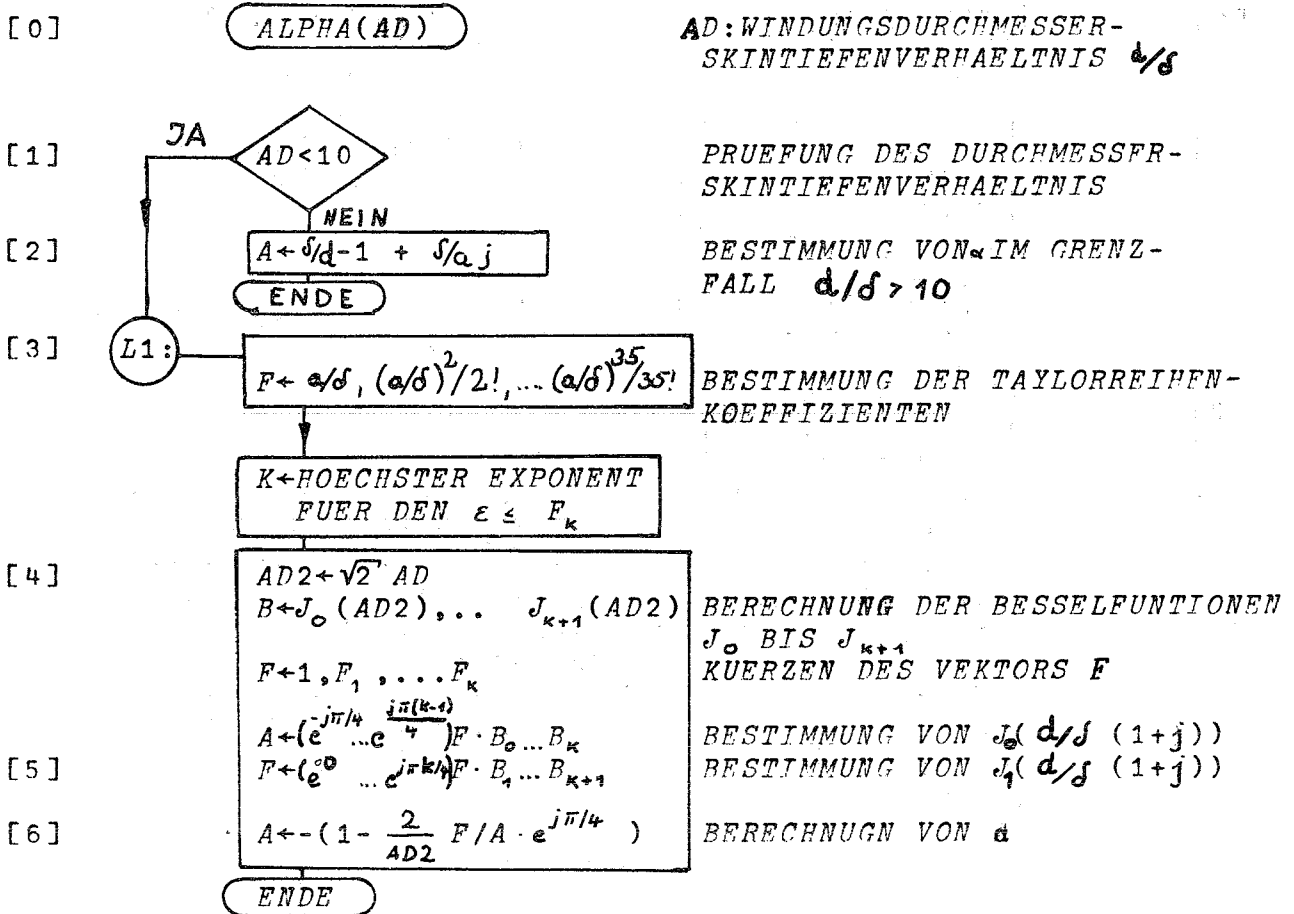 [0] ALPHA(AD) AD:WINDUNGSDURCHMESSER-
SKINTIEFENVERHAELTNIS d/δ
JA
[1] AD<10 PRUEFUNG DES DURCHMESSFR-
SKINTIEFENVERHAELTNIS
NEIN
[2] A←δ/d-1 + δ/a j BESTIMMUNG VON α IM GRENZ-
ENDE FALL d/δ > 10
[3] L1:
F← a/δ, (a/δ)²/2!, ... (a/δ)³⁵/35! BESTIMMUNG DER TAYLORREIHFN-
KOEFFIZIENTEN
K←HOECHSTER EXPONENT
FUER DEN ε ≤ Fₖ
[4] AD2←√2 AD
B←J₀(AD2),.. Jₖ₊₁(AD2) BERECHNUNG DER BESSELFUNTIONEN
J₀ BIS Jₖ₊₁
F←1,F₁,....Fₖ KUERZEN DES VEKTORS F
A←(e^-jπ/4 ...e^jπ(k-1)/4)F·B₀...Bₖ BESTIMMUNG VON J₀( d/δ (1+j))
[5] F←(e^0 ... e^jπk/4)F·B₁...Bₖ₊₁ BESTIMMUNG VON J₁( d/δ (1+j))
[6] A←-(1- 2/AD2 F/A · e^jπ/4 ) BERECHNUGN VON α
ENDE